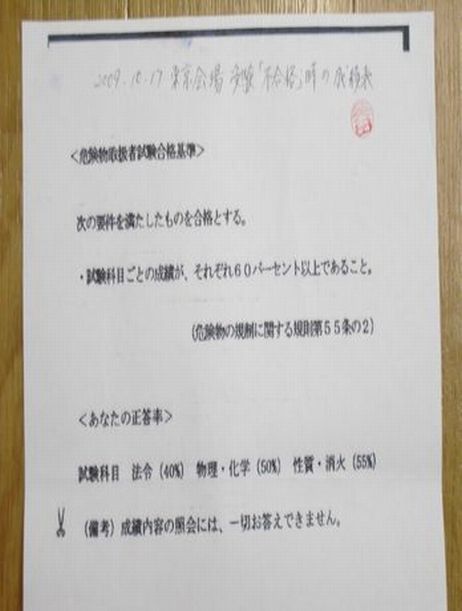 2009.10.17 東京会場 受験「不合格」時の成績表
<危険物取扱者試験合格基準>
次の要件を満たしたものを合格とする。
・試験科目ごとの成績が、それぞれ60パーセント以上であること。
(危険物の規制に関する規則第55条の2)
<あなたの正答率>
試験科目 法令(40%) 物理・化学(50%) 性質・消火(55%)
(備考)成績内容の照会には、一切お答えできません。